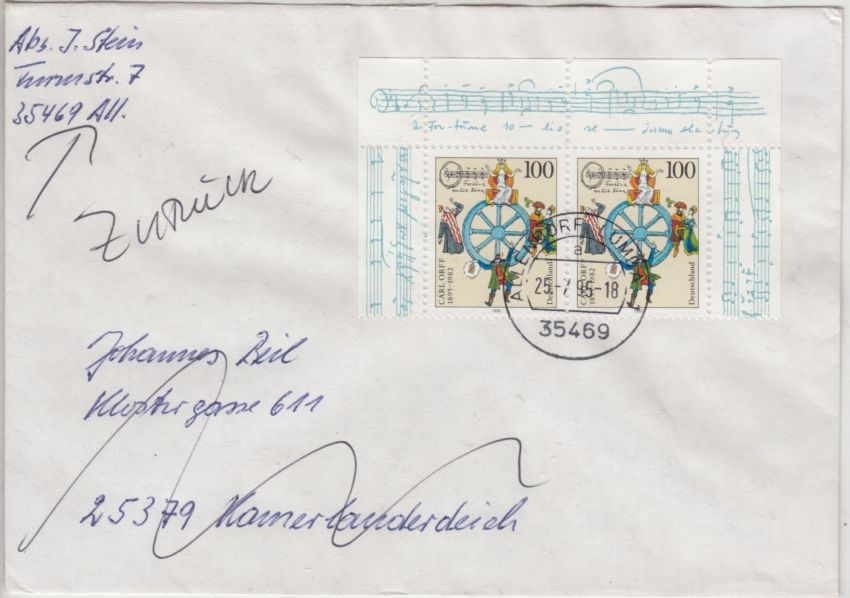 Abs. J. Stein
Turmstr. 7
35469 All.
Zurück
2. For-tune so- lio se-
100
100
CARL ORFF
1895-1982
Deutschland
CARL ORFF
1895-1982
Deutschland
ALLENDORF
a
25.-7.95-18
35469
Johannes Beil
Klostergasse 611
25379 Hamerlanderdeich